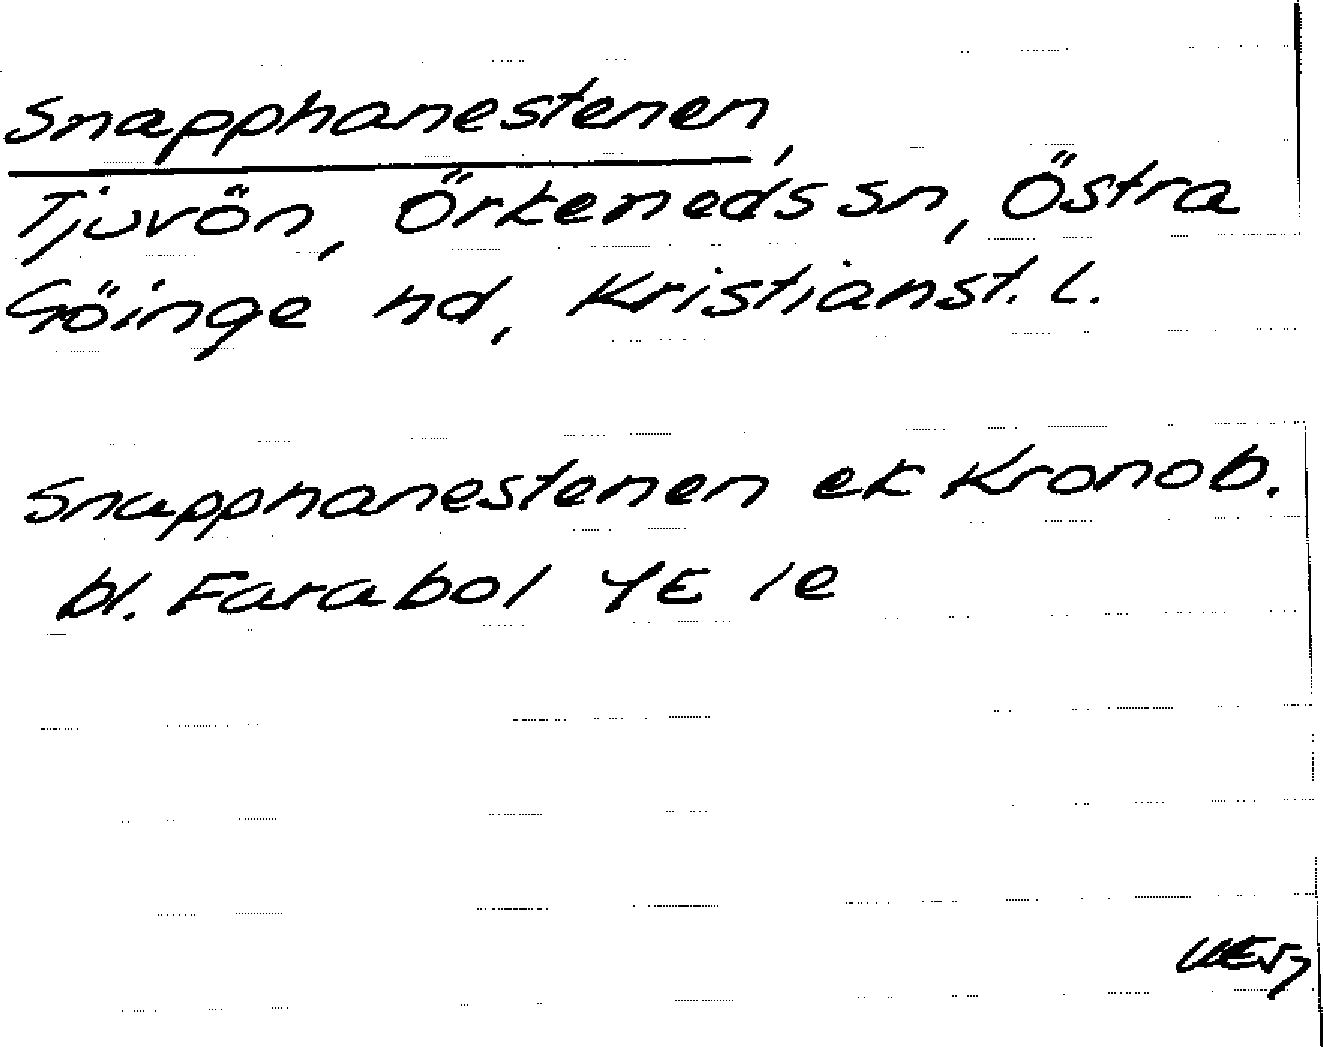 Snapphanestenen,
Tjuvön, Örkeneds sn, Östra
Göinge hd, Kristianst. l.
Snapphanestenen ek Kronob.
bl. Farabol 4E 1e